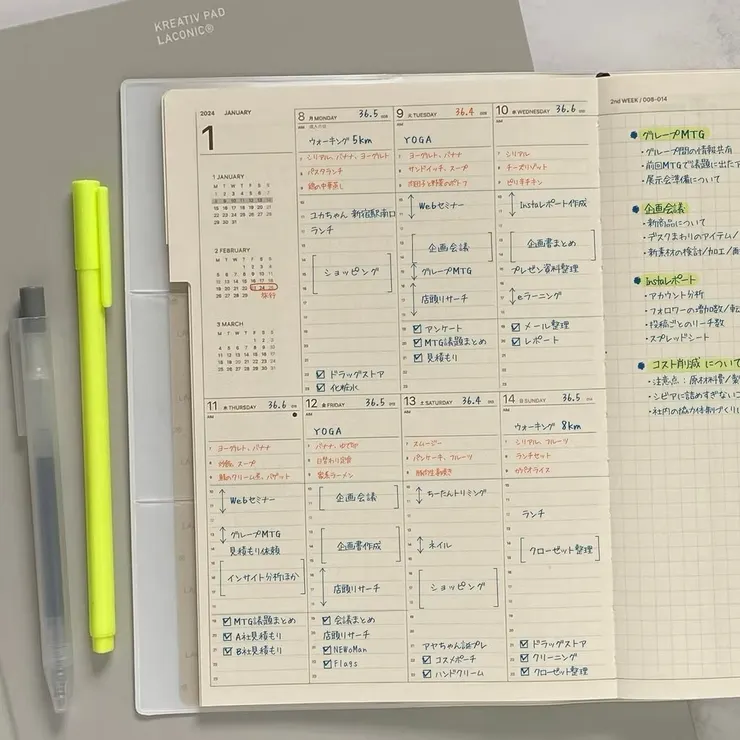 KREATIV PAD
LACONIC®
2024 JANUARY
1
1 JANUARY
M T W T F S S
2 FEBRUARY
M T W T F S S
旅行
3 MARCH
M T W T F S S
8 月 MONDAY 36.5
AM
ウォーキング 5km
シリアル、バナナ、ヨーグルト
パスタランチ
鶏の中華蒸し
ユカちゃん 新宿駅南口
ランチ
ショッピング
ドラッグストア
化粧水
9 火 TUESDAY 36.4
AM
YOGA
ヨーグルト、バナナ
サンドイッチ、スープ
肉団子と野菜のポトフ
Webセミナー
企画会議
グループMTG
店頭リサーチ
アンケート
MTG議題まとめ
見積もり
10 水 WEDNESDAY 36.6
AM
シリアル
チーズリゾット
ピリ辛チキン
Instaレポート作成
企画書まとめ
プレゼン資料整理
eラーニング
メール整理
レポート
11 木 THURSDAY 36.6
AM
ヨーグルト、バナナ
炒飯、スープ
鮭のクリーム煮、バゲット
Webセミナー
グループMTG
見積もり依頼
インサイト分析ほか
MTG議題まとめ
A社見積もり
B社見積もり
12 金 FRIDAY 36.5
AM
YOGA
バナナ、ゆで卵
日替わり定食
豚系ラーメン
企画会議
企画書作成
店頭リサーチ
会議まとめ
店頭リサーチ
NEWoMan
Flags
13 土 SATURDAY 36.4
AM
スムージー
パンケーキ、フルーツ
ちーたんトリミング
ネイル
ショッピング
アヤちゃん誕プレ
コスメポーチ
ハンドクリーム
14 日 SUNDAY 36.5
AM
ウォーキング 8km
シリアル、フルーツ
ランチセット
ガパオライス
ランチ
クローゼット整理
ドラッグストア
クリーニング
クローゼット整理
2nd WEEK / 008-014
グループMTG
・グループ間の情報共有
・前回MTGで議題に出た
・展示会準備について
企画会議
・新商品について
・デスクまわりのアイテム/
・新素材の検討/加工/
Instaレポート
・アカウント分析
・フォロワーの増加数/
・投稿ごとのリーチ数
・スプレッドシート
コスト削減について
・注意点：原材料費/
・シビアに詰めすぎない
・社内の協力体制づくり